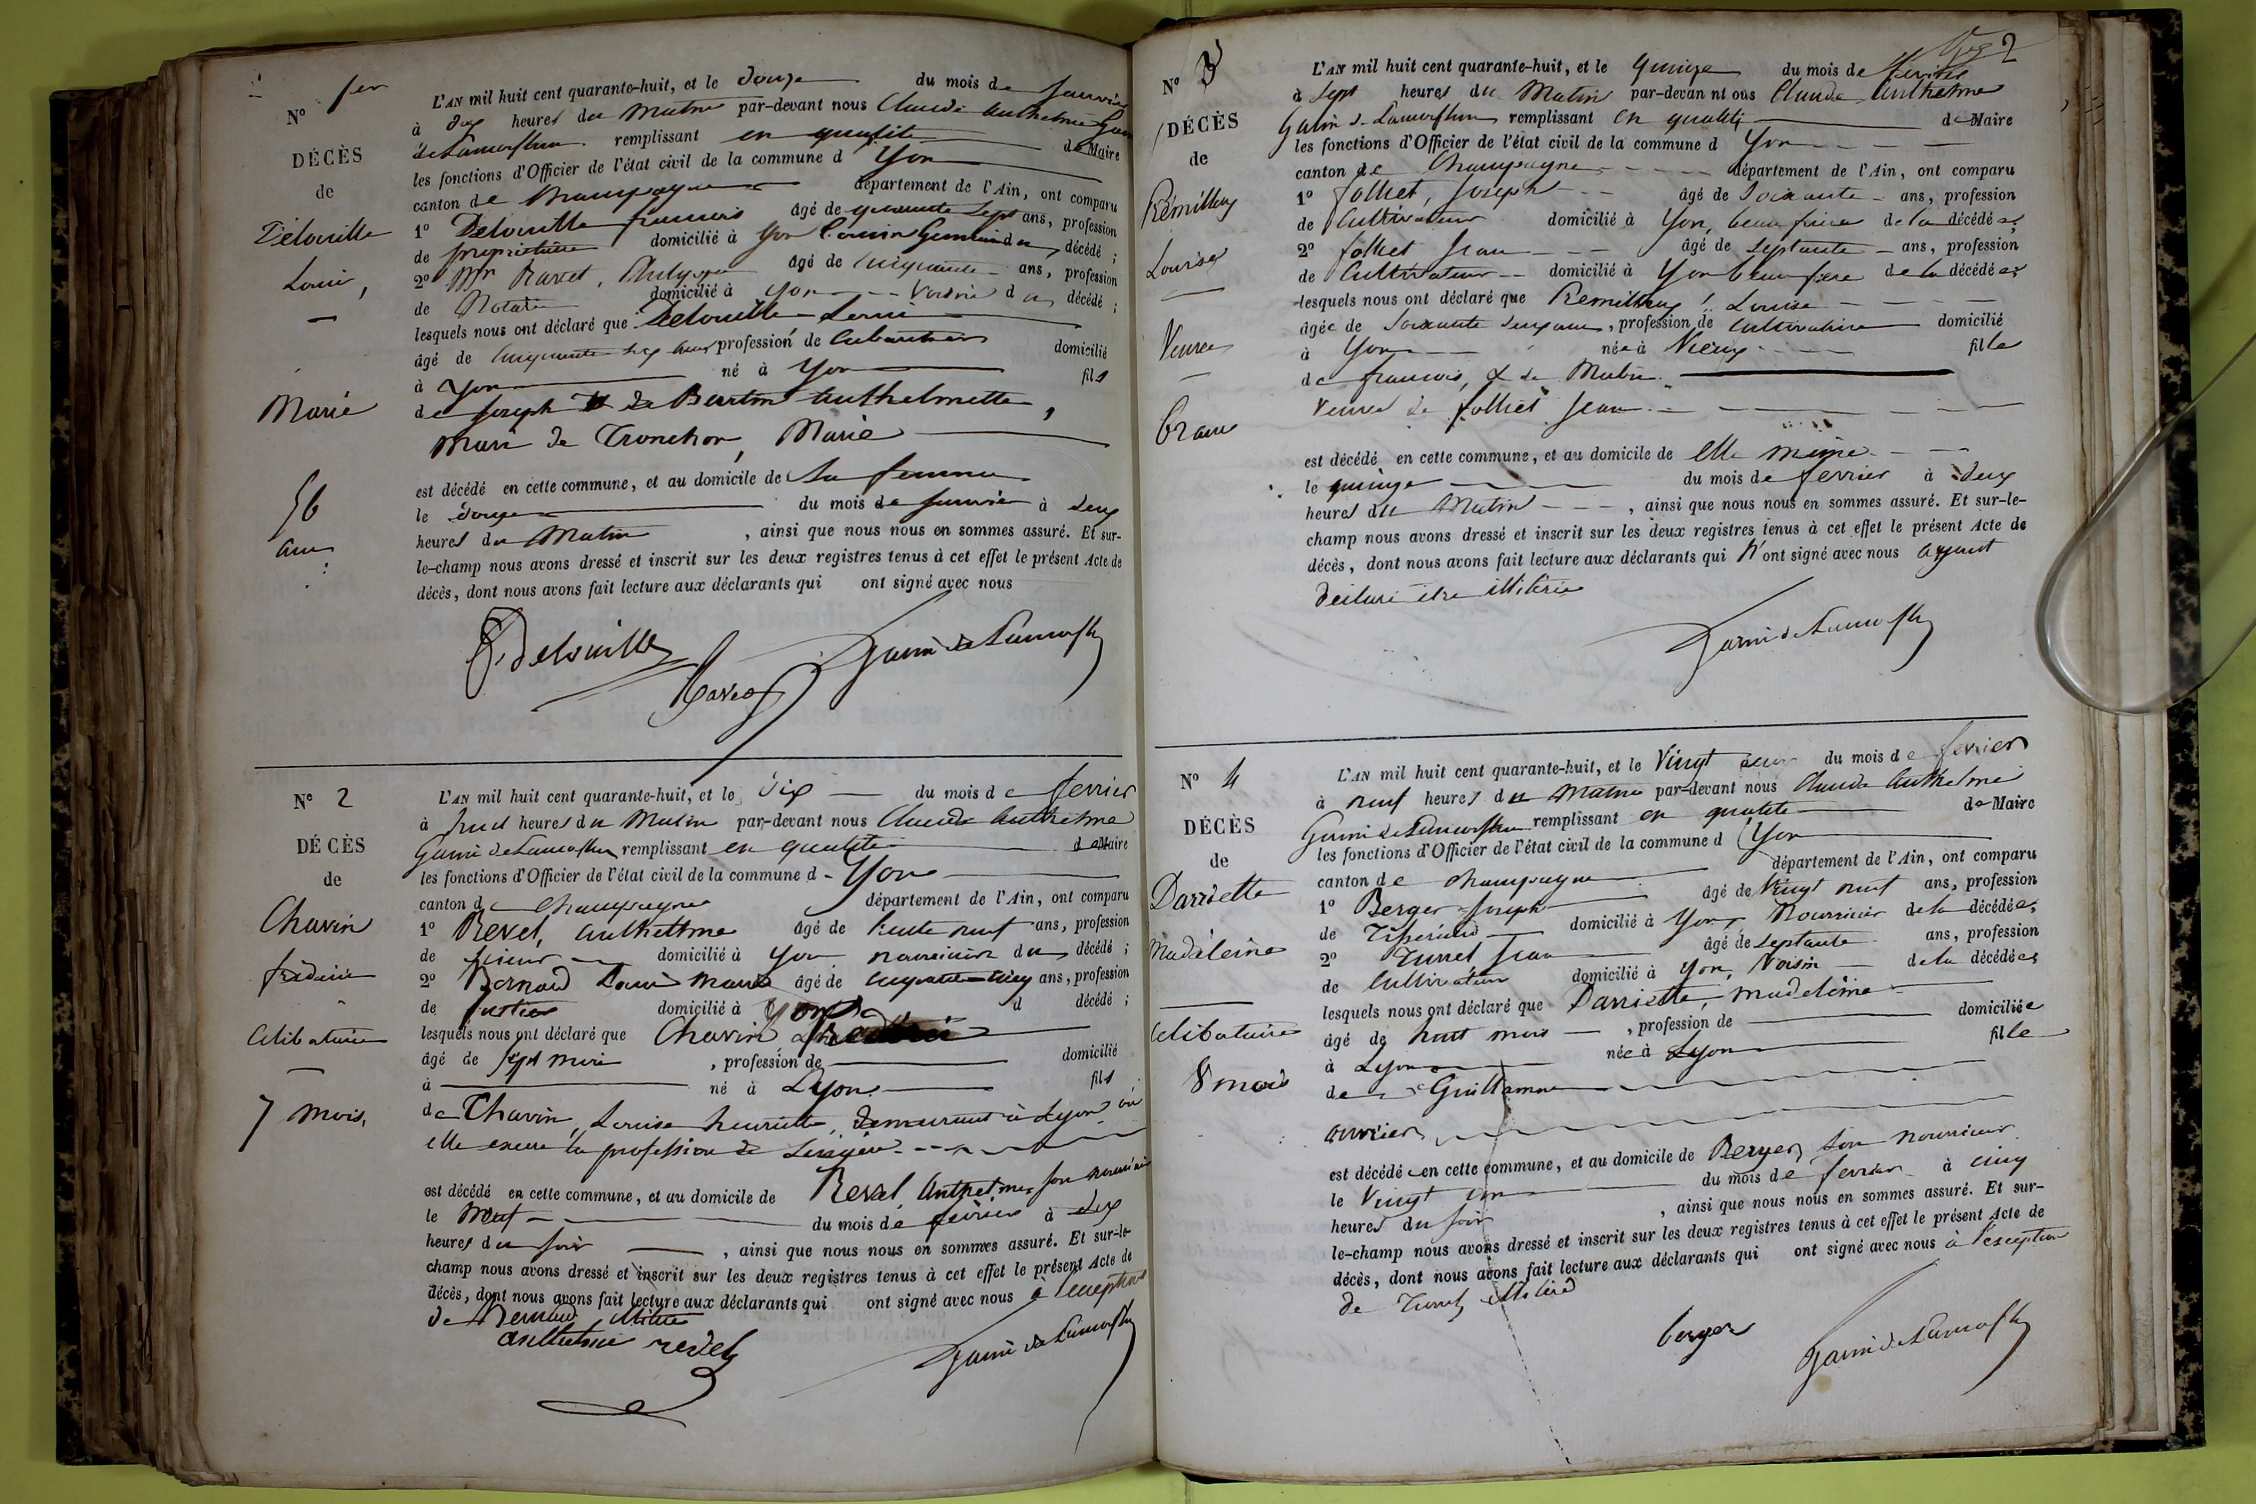 N° 1er
DÉCÈS
de
Delouille
Louis,
Marié
56
ans
L'AN mil huit cent quarante-huit, et le douze du mois de Janvier
à dix heures du Matin par-devant nous Claude Anthelme
remplissant en qualité de Maire
les fonctions d'Officier de l'état civil de la commune d Yon
canton de Champagne département de l'Ain, ont comparu
1° Delouille françois âgé de quarante sept ans, profession
de propriétaire domicilié à Yon Cousin Germain du décédé ;
2° Mr Ravet, âgé de cinquante ans, profession
de Notaire domicilié à Yon Voisin du décédé ;
lesquels nous ont déclaré que Delouille Louis
âgé de cinquante six ans profession de Cabaretier domicilié
à Yon né à Yon fils
de Joseph & de Berthin Anthelmette,
Mari de Tronchon, Marie
est décédé en cette commune, et au domicile de sa femme
le douze du mois de Janvier à deux
heures du Matin , ainsi que nous nous en sommes assuré. Et sur-
le-champ nous avons dressé et inscrit sur les deux registres tenus à cet effet le présent Acte de
décès, dont nous avons fait lecture aux déclarants qui ont signé avec nous
Delouille
Ravet
N° 2
DÉCÈS
de
Chavin
frédéric
Célibataire
7 mois,
L'AN mil huit cent quarante-huit, et le dix du mois de fevrier
à huit heures du Matin par-devant nous Claude Anthelme
remplissant en qualité de Maire
les fonctions d'Officier de l'état civil de la commune d Yon
canton de Champagne département de l'Ain, ont comparu
1° Revel, Anthelme âgé de trente neuf ans, profession
de domicilié à Yon nourricier du décédé ;
2° Bernard Louis Marie âgé de cinquante cinq ans, profession
de domicilié à Yon d décédé ;
lesquels nous ont déclaré que Chavin frédéric
âgé de sept mois , profession de domicilié
à né à Lyon fils
de Chavin, Louise henriette, demeurant à Lyon où
elle exerce la profession de Lingère
est décédé en cette commune, et au domicile de Revel Anthelme, son nourricier
le neuf du mois de février à dix
heures du soir , ainsi que nous nous en sommes assuré. Et sur-le-
champ nous avons dressé et inscrit sur les deux registres tenus à cet effet le présent Acte de
décès, dont nous avons fait lecture aux déclarants qui ont signé avec nous à l'exception
de Bernard illitéré
anthelme revel
N° 3
DÉCÈS
de
Rémilleux
Louise
Veuve
62 ans
2
L'AN mil huit cent quarante-huit, et le quinze du mois de février
à sept heures du Matin par-devan nt ous Claude Anthelme
remplissant en qualité de Maire
les fonctions d'Officier de l'état civil de la commune d Yon
canton de Champagne département de l'Ain, ont comparu
1° folliet, Joseph âgé de soixante ans, profession
de Cultivateur domicilié à Yon, beau frère de la décédée ;
2° folliet Jean âgé de septante ans, profession
de Cultivateur domicilié à Yon beau frère de la décédée
lesquels nous ont déclaré que Rémilleux Louise
âgée de soixante deux ans, profession de cultivatrice domicilié
à Yon née à Vieux fille
de francois, & de Mabin
veuve de folliet Jean
est décédé en cette commune, et au domicile de elle même
le quinze du mois de fevrier à deux
heures du Matin , ainsi que nous nous en sommes assuré. Et sur-le-
champ nous avons dressé et inscrit sur les deux registres tenus à cet effet le présent Acte de
décès, dont nous avons fait lecture aux déclarants qui n'ont signé avec nous ayant
déclaré être illitérés
N° 4
DÉCÈS
de
Darriette
Madeleine
Célibataire
8 mois
L'AN mil huit cent quarante-huit, et le Vingt deux du mois de fevrier
à neuf heures du Matin par-devant nous Claude Anthelme
remplissant en qualité de Maire
les fonctions d'Officier de l'état civil de la commune d Yon
canton de Champagne département de l'Ain, ont comparu
1° Berger Joseph âgé de Vingt neuf ans, profession
de Tisserand domicilié à Yon, Nourricier de la décédée,
2° Turret Jean âgé de septante ans, profession
de Cultivateur domicilié à Yon, Voisin de la décédée
lesquels nous ont déclaré que Darriette, Madeleine
âgé de huit mois , profession de domiciliée
à Lyon née à Lyon fille
de Guillaume
ouvrier
est décédé en cette commune, et au domicile de Berger, son nourricier
le Vingt un du mois de fevrier à cinq
heures du soir , ainsi que nous nous en sommes assuré. Et sur-
le-champ nous avons dressé et inscrit sur les deux registres tenus à cet effet le présent Acte de
décès, dont nous avons fait lecture aux déclarants qui ont signé avec nous à l'exception
de Turret illitéré
berger